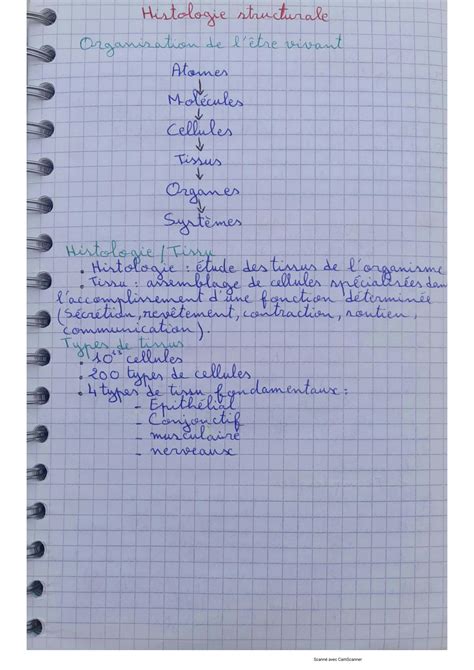 Histologie structurale
Organisation de l'être vivant
Atomes
↓
Molécules
↓
Cellules
↓
Tissus
↓
Organes
↓
Systèmes
Histologie / Tissu
. Histologie : étude des tissus de l'organisme
. Tissu : assemblage de cellules spécialisées dans
l'accomplissement d'une fonction déterminée
(Sécrétion, revêtement, contraction, soutien,
communication).
Types de tissus
. cellules
. 200 types de cellules
. 4 types de tissu fondamentaux :
- Epithélial
- Conjonctif
- musculaire
- nerveaux
Scanné avec CamScanner